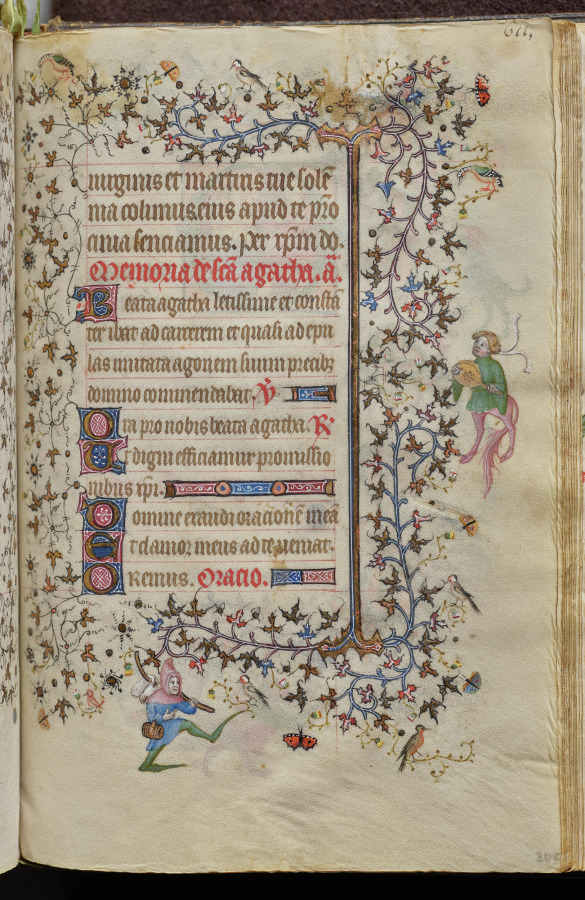 uirginis et martiris tue sole̅
nia colimus, eius apud te pro
cinia senciamus. Per xp̅m do.
Memoria de sca̅ agatha. a̅.
Beata agatha letissime et consta̅
ter ibat ad carcerem et quasi ad epu
las inuitata agonem suum precibꝫ
domino commendabat. V̸
Ora pro nobis beata agatha. R̸
Et digni efficiamur promissio
nibus xp̅i.
Domine exaudi oracione̅ mea̅
Et clamor meus ad te veniat.
Oremus. Oracio.
308